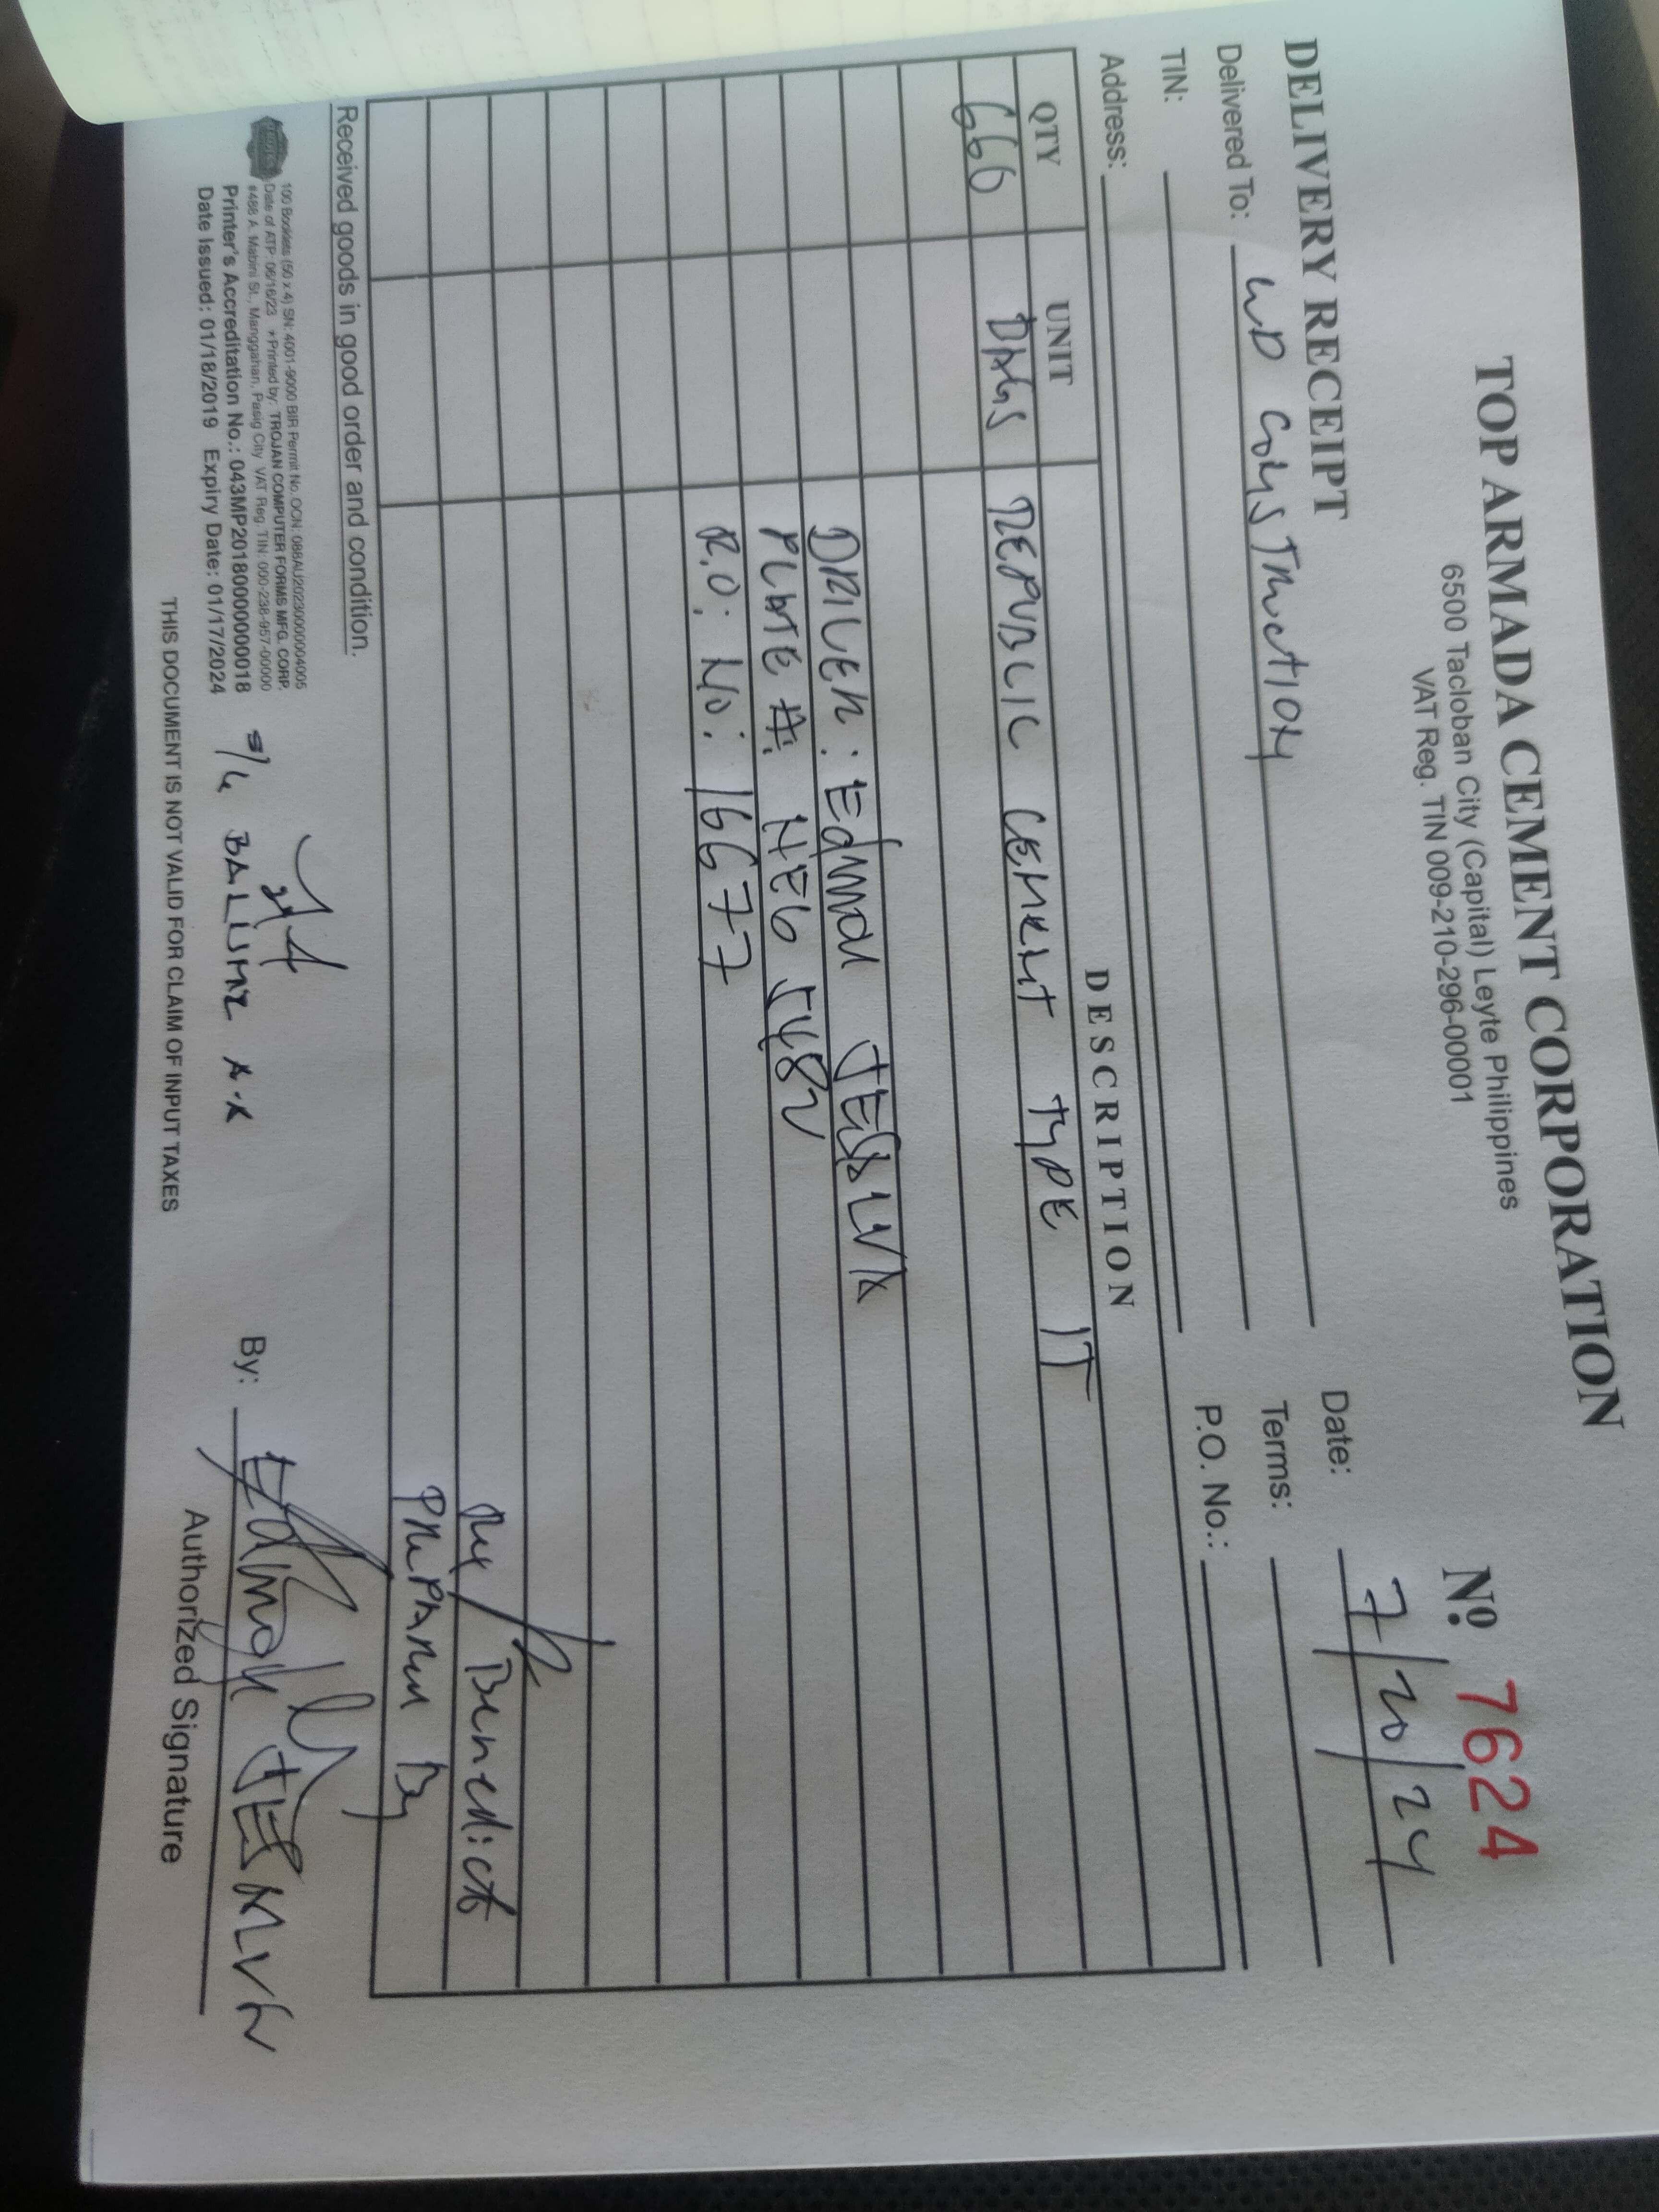 TOP ARMADA CEMENT CORPORATION
6500 Tacloban City (Capital) Leyte Philippines
VAT Reg. TIN 009-210-296-00001
Nº 7624
DELIVERY RECEIPT
Date: 7/20/24
Delivered To: WD Construction
Terms:
TIN:
P.O. No.:
Address:
QTY UNIT DESCRIPTION
660 BAGS REPUBLIC CEMENT TYPE IT
DRIVER: Edmar
PLATE #: NEG 5482
R.O: No: 16677
Benedict
PREPARED By
Received goods in good order and condition.
100 Booklets (50 x 4) SN: 4001-9000 BIR Permit No. OCN: 088AU20230000004005
Date of ATP: 06/16/23 *Printed by: TROJAN COMPUTER FORMS MFG. CORP.
#488 A. Mabini St., Manggahan, Pasig City VAT Reg. TIN: 000-238-957-0000
Printer's Accreditation No.: 043MP20180000000018
Date Issued: 01/18/2019 Expiry Date: 01/17/2024
By:
Authorized Signature
THIS DOCUMENT IS NOT VALID FOR CLAIM OF INPUT TAXES